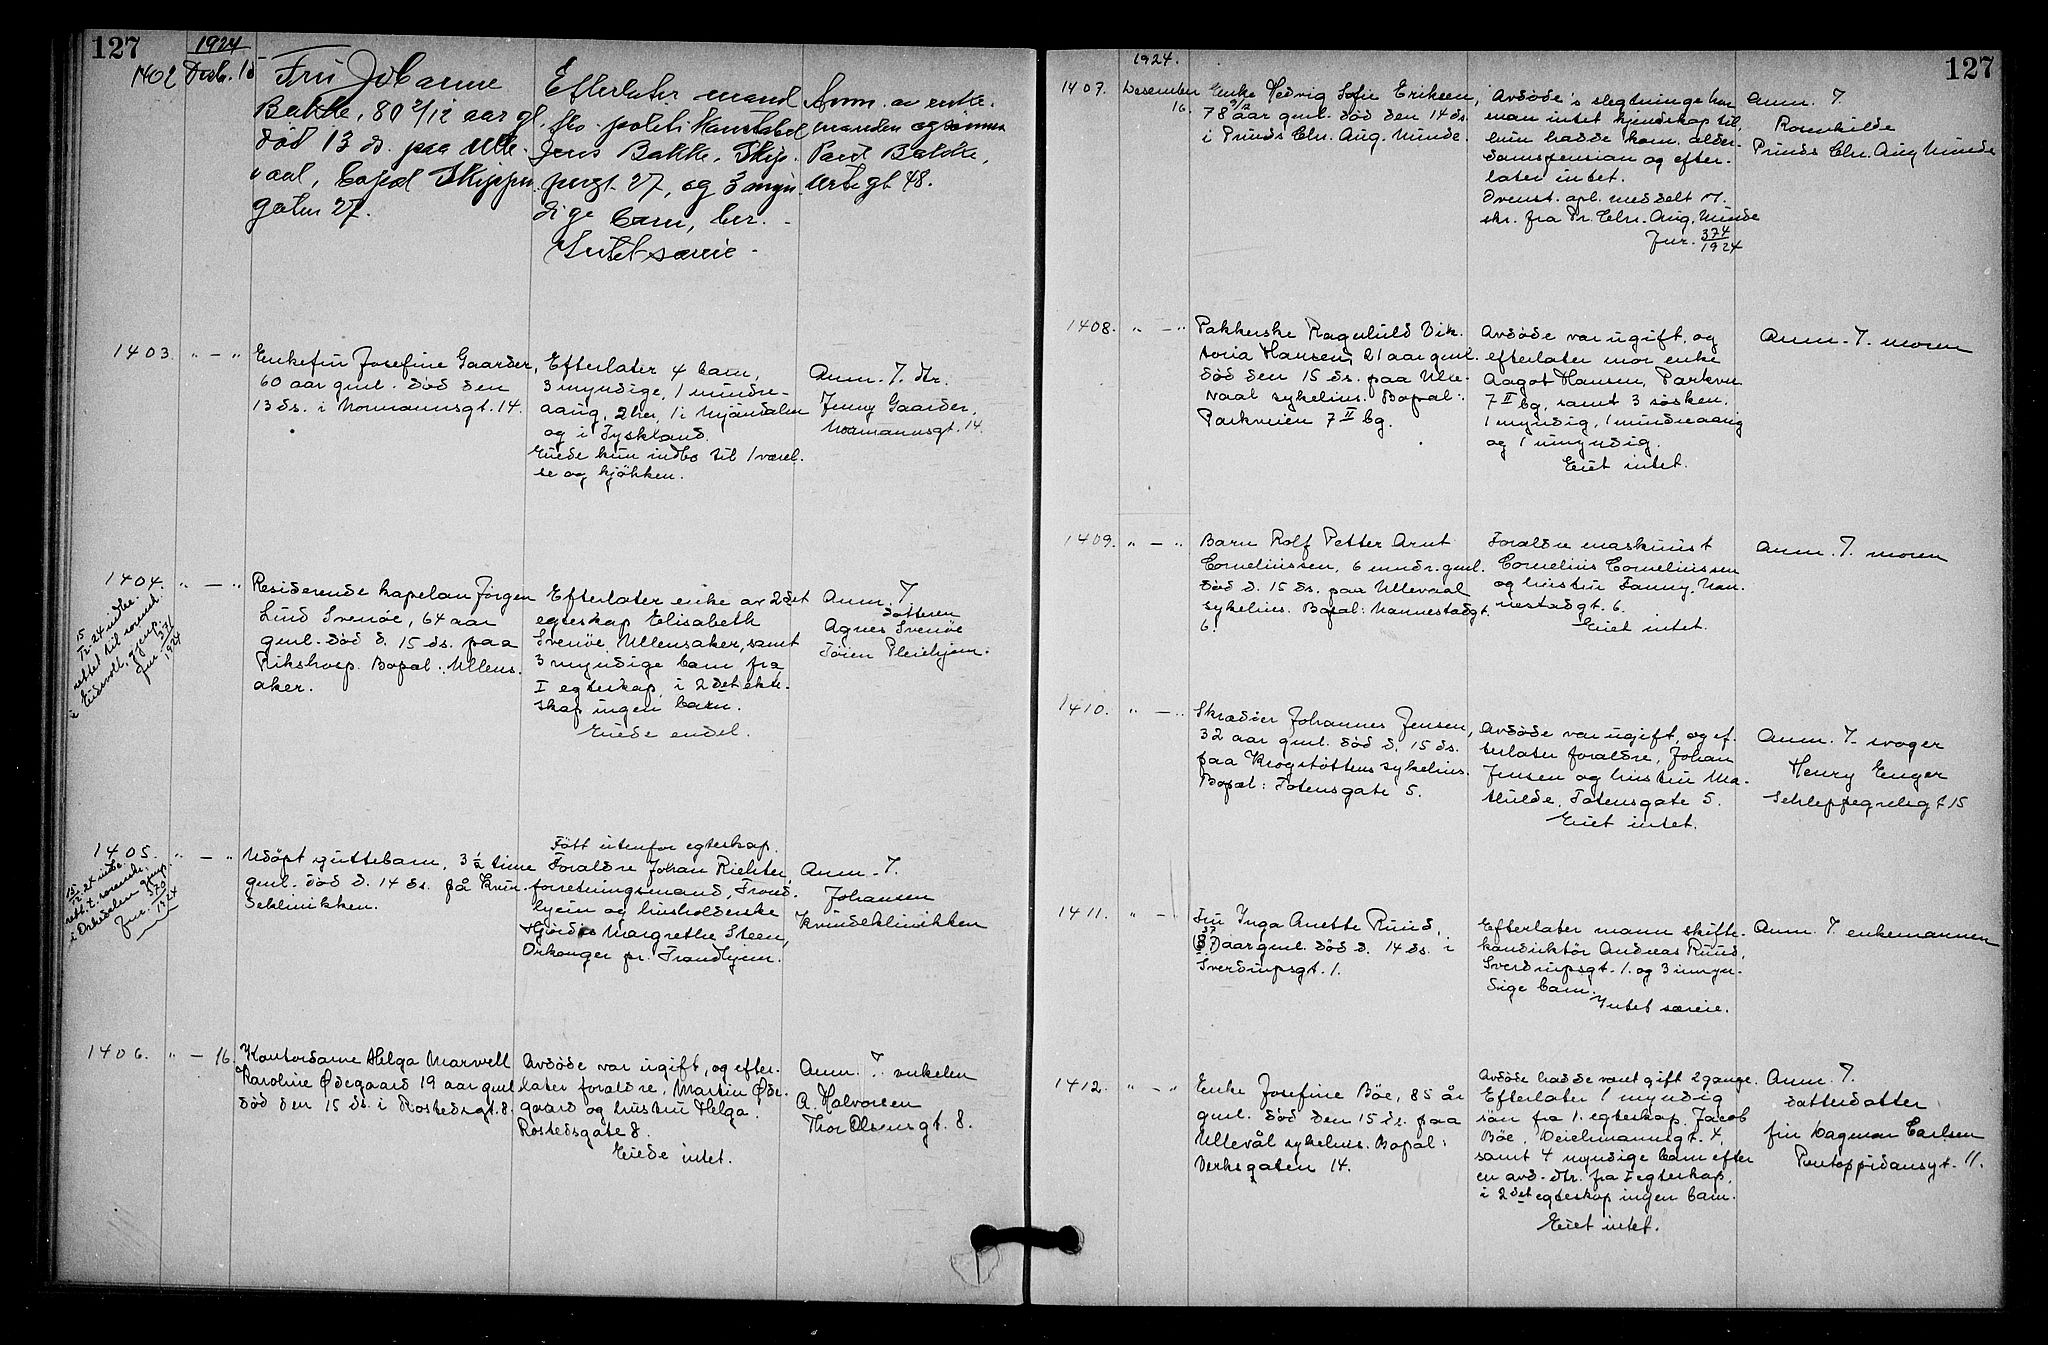 127
1924
1402 Desb. 15
Fru Johanne
Bakke, 80 2/12 aar gl.
død 13 ds. paa Ulle-
vaal, bopæl Skipper
gaten 27.
Efterlater mand
politikonstabel
Jens Bakke, Skip-
pergt. 27, og 3 myn
dige barn, her.
Intet særeie -
Anm. av enke-
manden og sønnen
Paul Bakke,
Urtegt 48.
1403. " — "
Enkefru Josefine Gaarder,
60 aar gml. død den
13 ds. i Normannsgt. 14.
Efterlater 4 barn,
3 myndige, 1 mindre-
aarig, 2 her, 1 i Mjøndalen
og i Tyskland.
Eiede kun indbo til 1 værel-
se og kjøkken.
Anm. T. dtr.
Jenny Gaarder,
Normannsgt. 14.
1404. " — "
15/12-24 indbe.
rettet til sorenst.
i Eidsvoll, gjenp.
Jnr. 371/1924
Residerende kapelan Jörgen
Lund Svenöe, 64 aar
gml. død d. 15 ds. paa
Rikshosp. Bopæl: Ullens-
aker.
Efterlater enke av 2det
egteskap Elisabeth
Svenöe, Ullensaker, samt
3 myndige barn fra
I egteskap, i 2det ekte-
skap ingen barn.
Eiede endel.
Anm. T
datteren
Agnes Svenöe
Töien Pleiehjem.
1405. " — "
15/12-24 indbe.
rett. t. sorenskr.
i Orkedalen gjenp.
Jnr. 370/1924
Udöpt guttebarn, 3 1/2 time
gml. død d. 14 ds. på Kvin-
deklinikken.
Född utenfor egteskap.
Foraldre Johan Richter,
forretningsmand, Trond-
hjem og husholderske
Hjördis Margrethe Steen,
Orkanger pr. Trondhjem.
Anm. T.
Johansen
Kvindeklinikken
1406. " — 16.
Kontordame Helga Marvell
Karoline Ødegaard 19 aar gml
død den 15 ds. i Rostedsgt. 8.
Avdøde var ugift, og efter-
later foraldre, Martin Øde-
gaard og hustru Helga.
Rostedsgate 8.
Eiede intet.
Anm. T. onkelen
A. Halvorsen
Thor Olsensgt. 8.
127
1924.
1407. Desember
16.
Enke Hedvig Sofie Eriksen,
78 9/12 aar gml. død den 14 ds.
i Prinds Chr. Aug. Minde.
Avdøde's slegtninge har
man intet kjendskap til,
hun hadde kom. alder-
domspension og efter-
later intet.
Ovenst. opl. meddelt
skr. fra Pr. Chr. Aug. Minde
Jnr. 374/1924
Anm. T.
Rosenkilde
Prinds Chr. Aug Minde
1408. " — "
Pakkerske Ragnhild Vik-
toria Hansen, 21 aar gml.
død den 15 ds. paa Ulle-
vaal sykehus. Bopæl:
Parkveien 7 II bg.
Avdøde var ugift, og
efterlater mor enke
Aagot Hansen, Parkvn
7 II bg, samt 3 søsken.
1 myndig, 1 mindreaarig
og 1 umyndig.
Eiet intet.
Anm. T. moren
1409. " — "
Barn Rolf Petter Arnt
Corneliussen, 6 mndr. gml.
død d. 15 ds. paa Ullevaal
sykehus. Bopæl: Mannestadgt.
6.
Foraldre maskinist
Cornelius Corneliussen
og hustru Fanny, Man-
nestadgt. 6.
Eiet intet.
Anm. T. moren
1410. " — "
Skrædder Johannes Jensen,
32 aar gml. død d. 15 ds.
paa Krogstøttens sykehus.
Bopæl: Totensgate 5.
Avdøde var ugift, og ef-
terlater foraldre, Johan
Jensen og hustru Ma-
thilde, Totensgate 5.
Eiet intet.
Anm. T. svoger
Henry Enger
Schleppegrellsgt 15
1411. " — "
Fru Inga Anette Ruud,
aar gml. død d. 14 ds. i
Sverdrupsgt. 1.
Efterlater mann skifte-
konduktör Andreas Ruud,
Sverdrupsgt. 1. og 3 umyn-
dige barn.
Intet særeie.
Anm. T. enkemannen
1412. " — "
Enke Josefine Böe, 85 år
gml. død den 15 ds. paa
Ullevål sykehus. Bopæl:
Verksgaten 14.
Avdøde hadde vært gift 2 gange.
Efterlater 1 myndig
sön fra 1. egteskap, Jacob
Böe, Deichmannsgt. 4,
samt 4 myndige barn efter
en avd. dtr. fra I egteskap,
i 2det egteskap ingen barn.
Eiet intet.
Anm. T.
datterdatter
fru Dagmar Carlsen
Pontoppidansgt. 11.